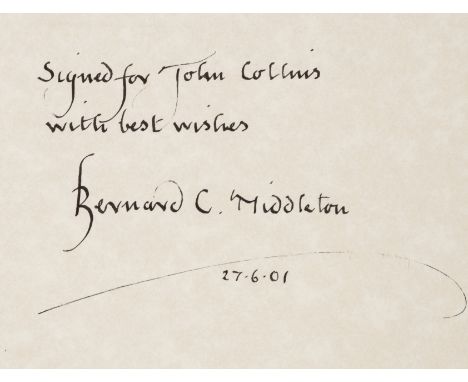 Signed for John Collins
with best wishes
Bernard C. Middleton
27·6·01